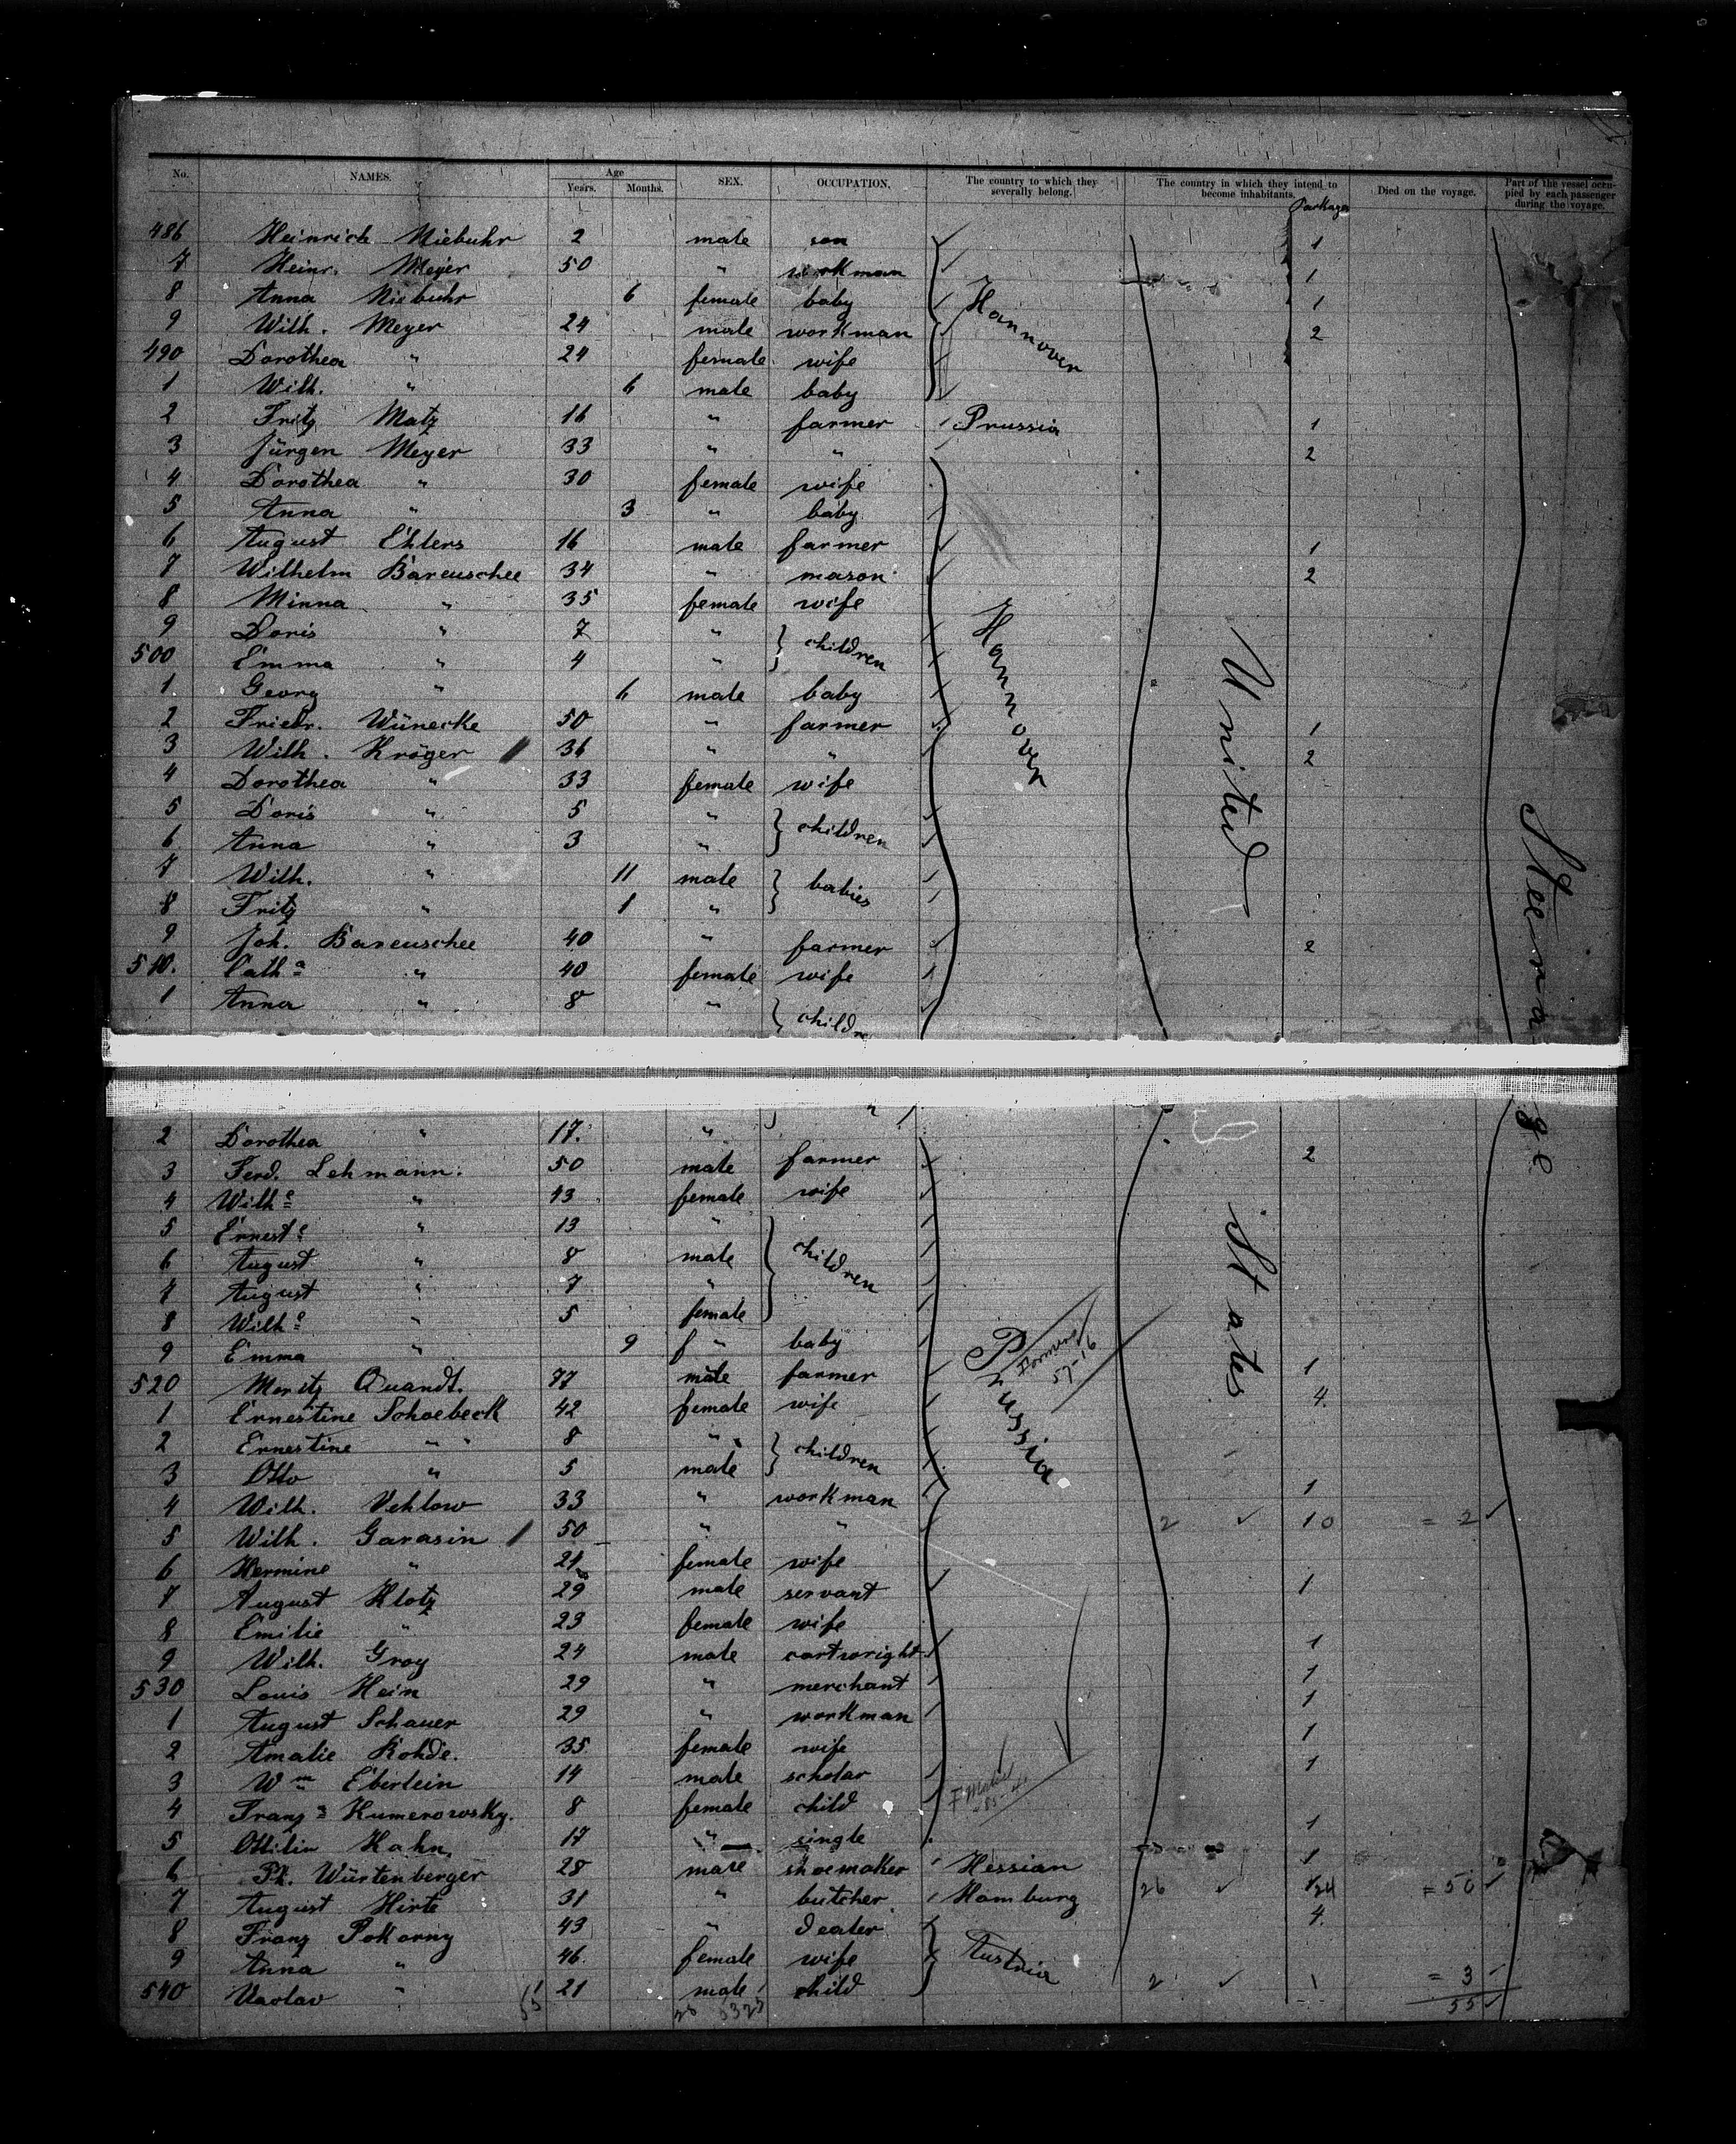 No. NAMES. Age Years. Months. SEX. OCCUPATION. The country to which they severally belong. The country in which they intend to become inhabitants. Packages Died on the voyage. Part of the vessel occupied by each passenger during the voyage.
486 Heinrich Niebuhr 2 male son 1
7 Heinr. Meyer 50 " workman 1
8 Anna Niebuhr 6 female baby Hannover 1
9 Wilh. Meyer 24 male workman 2
490 Dorothea " 24 female wife
1 Wilh. " 6 male baby
2 Fritz Matz 16 " farmer Prussia 1
3 Jürgen Meyer 33 " " 2
4 Dorothea " 30 female wife
5 Anna " 3 " baby
6 August Ehlers 16 male farmer 1
7 Wilhelm Bareuschee 34 " mason 2
8 Minna " 35 female wife Hannover
9 Doris " 7 " children
500 Emma " 4 " United
1 Georg " 6 male baby
2 Friedr. Wünecke 50 " farmer 1
3 Wilh. Kröger 36 " " 2
4 Dorothea " 33 female wife
5 Doris " 5 " children
6 Anna " 3 " Steera
7 Wilh. " 11 male babies
8 Fritz " 1 "
9 Joh. Bareuschee 40 " farmer 2
510. Cath.a " 40 female wife
1 Anna " 8 " childre
2 Dorothea " 17. " " ge
3 Ferd. Lehmann. 50 male farmer 2
4 Wilh.e " 43 female wife
5 Ernest.e " 13 " States
6 August " 8 male children
7 August " 7 "
8 Wilh.e " 5 female
9 Emma " 9 f " baby Prussia
520 Moritz Quandt. 77 male farmer 1
1 Ernestine Schoebeck 42 female wife 4.
2 Ernestine " " 8 " children
3 Otto " 5 male
4 Wilh. Vehlow 33 " workman 1
5 Wilh. Garasin 50 " " 2 10 = 2
6 Hermine " 21 female wife
7 August Klotz 29 male servant 1
8 Emilie " 23 female wife
9 Wilh. Groy 24 male cartwright 1
530 Louis Hein 29 " merchant 1
1 August Schauer 29 " workman 1
2 Amalie Rohde. 35 female wife 1
3 Wm Eberlein 14 male scholar 1
4 Franz.a Kumerowsky. 8 female child
5 Ottilie Hahn 17 " single 1
6 Ph. Würtenberger 28 male shoemaker Hessian 1
7 August Hirte 31 " butcher Hamburg 26 = 50
8 Franz Pokorny 43 " dealer 4.
9 Anna " 46. female wife Austria
540 Vaclav " 21 male child 2 1 = 3
55